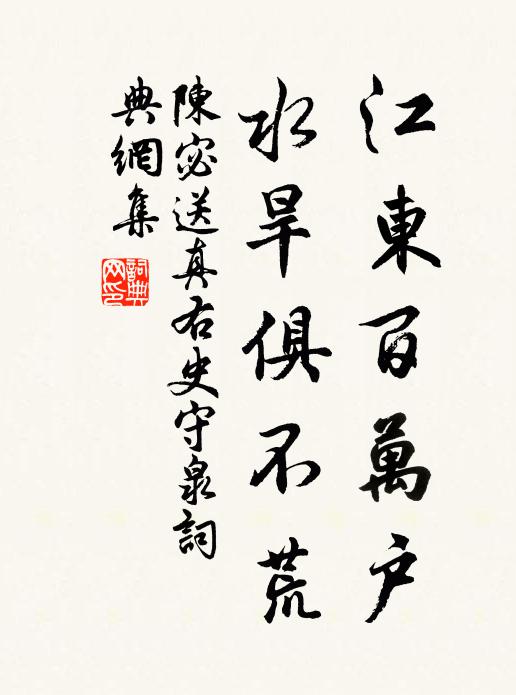 江東百萬戶
水旱俱不荒
陳宓送真右史守泉詞
典網集
詞典网印